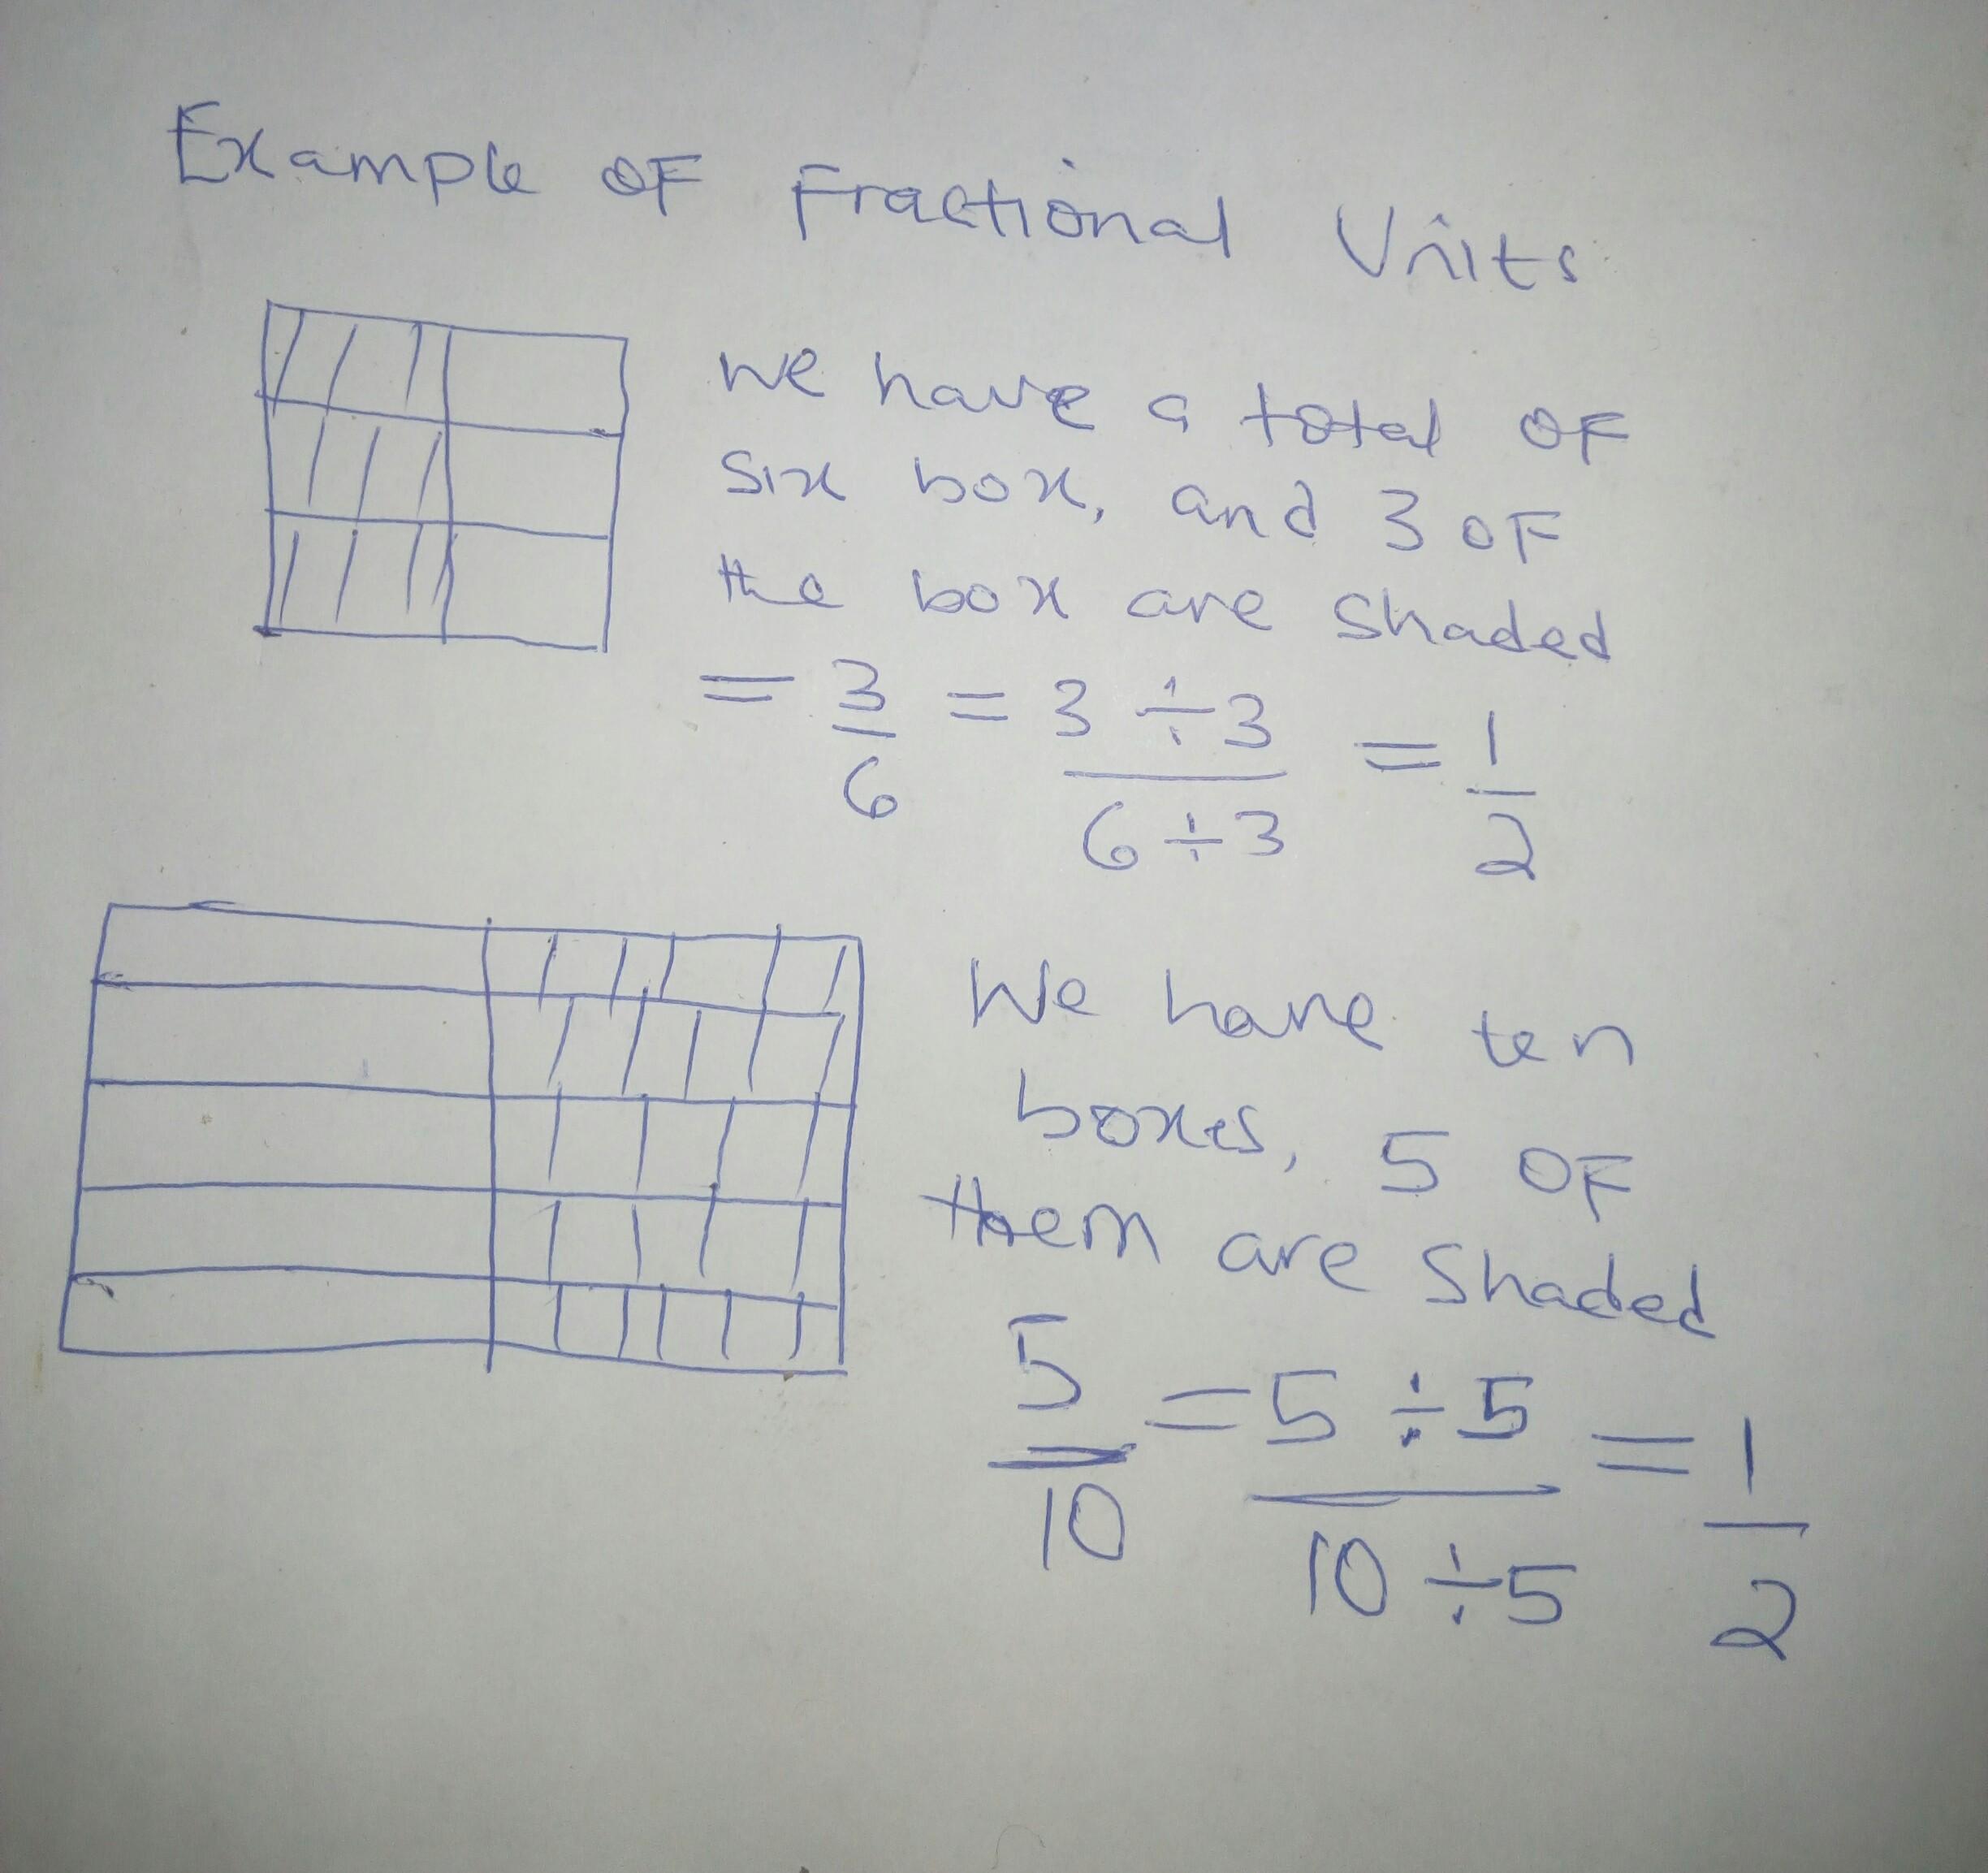 Example OF Fractional Units
We have a total OF
Six box, and 3 OF
the box are Shaded
= 3/6 = 3 ÷ 3 / 6 ÷ 3 = 1/2
We have ten
boxes, 5 OF
them are Shaded
5/10 = 5 ÷ 5 / 10 ÷ 5 = 1/2